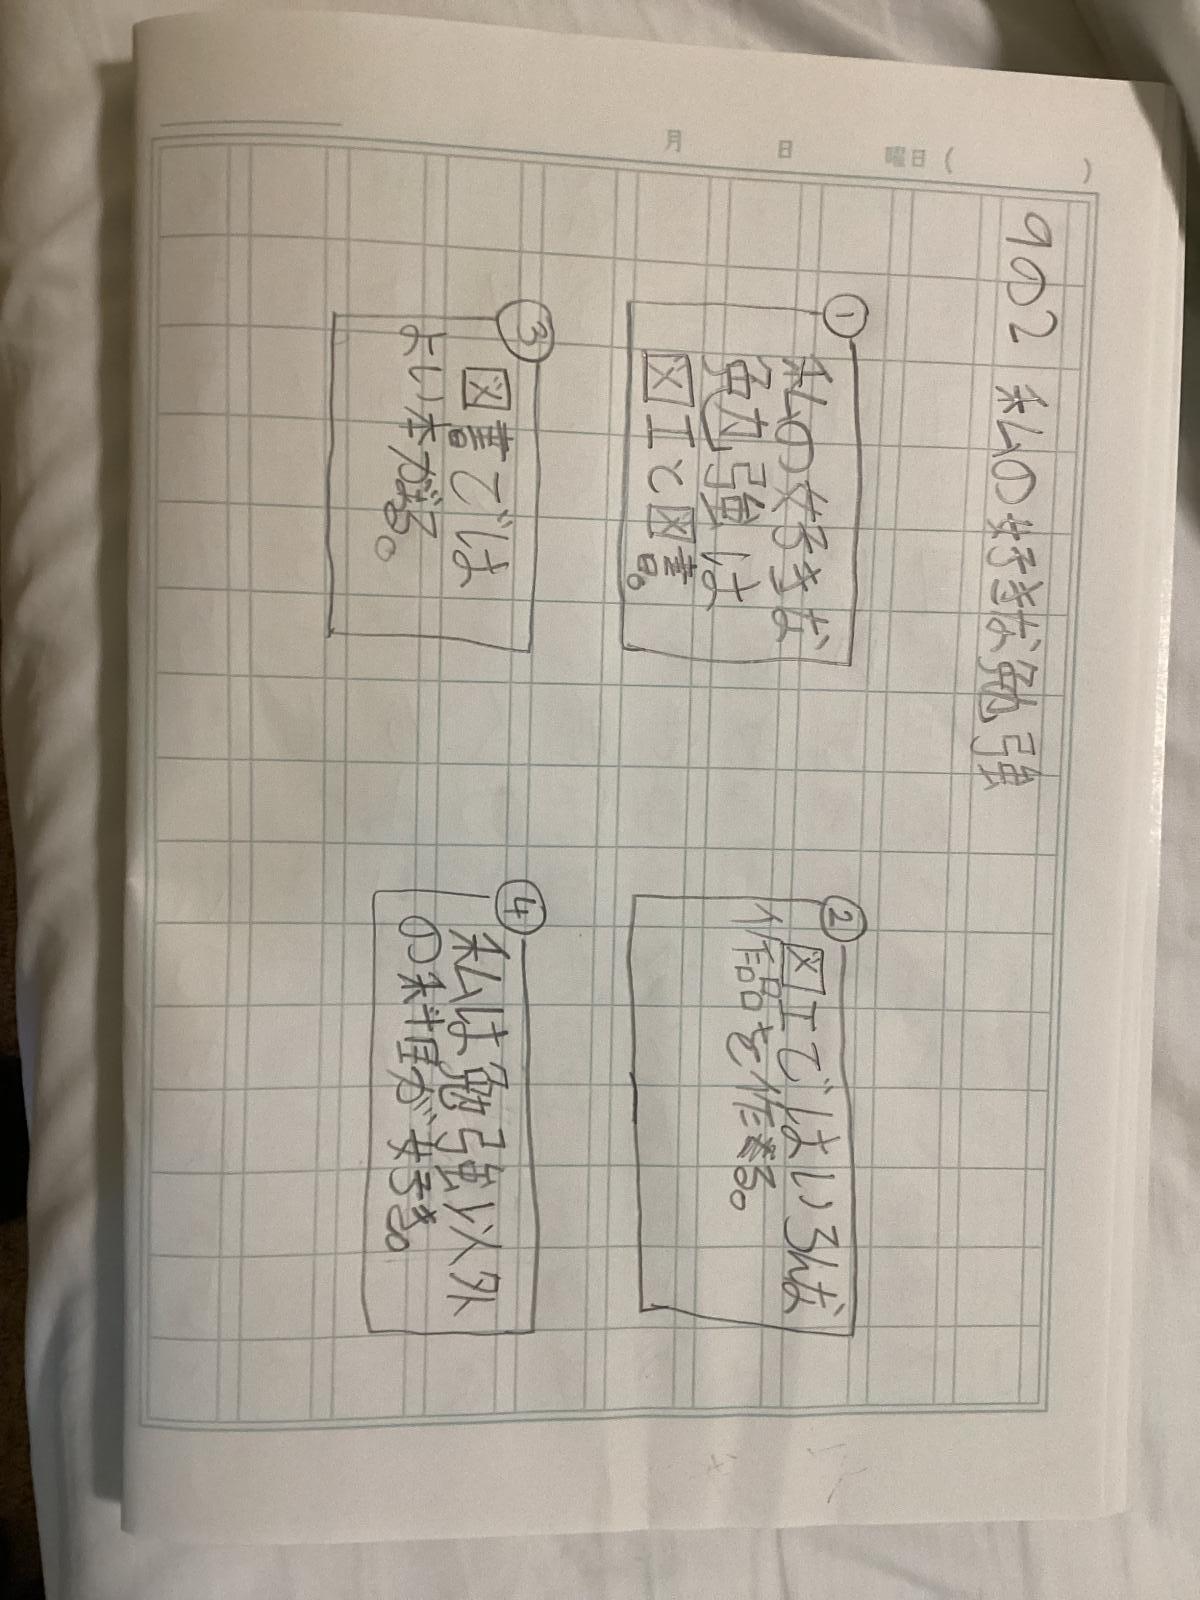 月 日 曜日 ( )
9の2 私の好きな勉強
①
私の好きな
勉強は
図工と図書。
②
図工ではいろんな
作品を作る。
③
図書では
よい本がある。
④
私は勉強以外
の科目が好き。